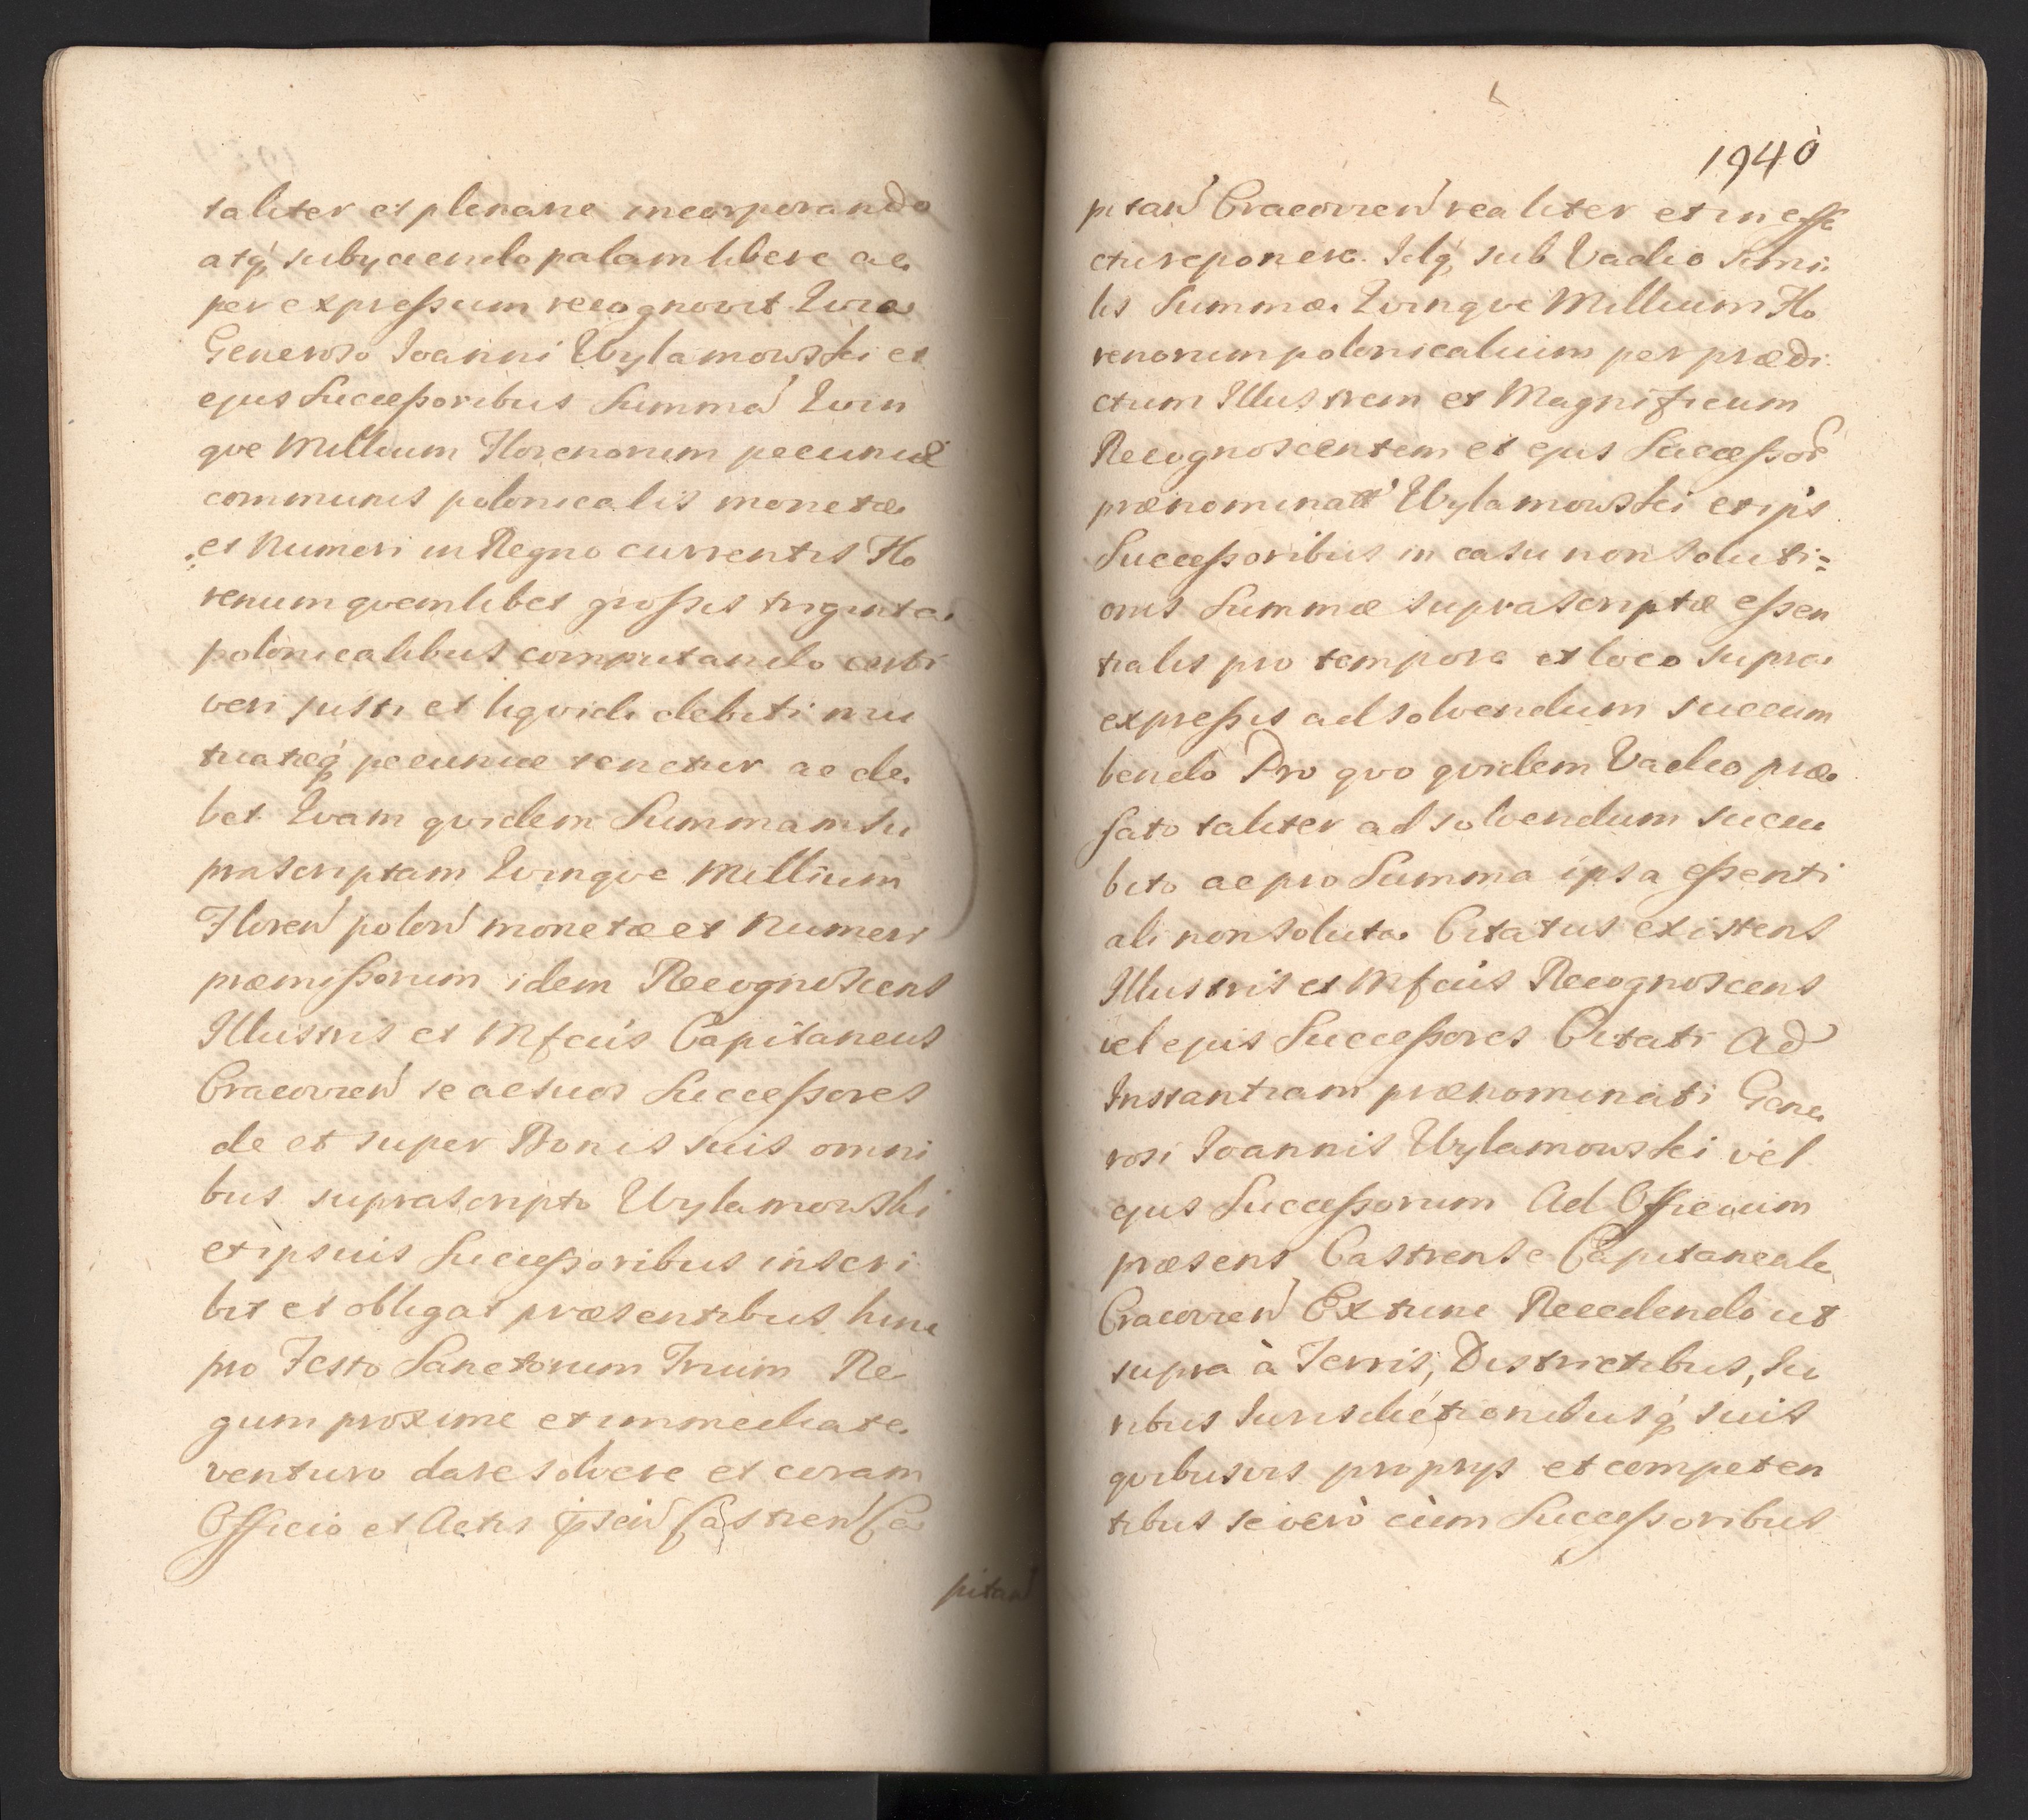 taliter et plenarie incorporando
atq́ subyciendo palam libere ac
per expressum recognovit Qvia
Generoso Joanni Wylamowski et
ejus Successoribus Summa Qvin
qve Millium Florenorum pecuniæ
communis polonicalis monetæ
et Numeri in Regno currentis Flo
renum qvemlibet grossis triginta
polonicalibus computando certi
veri justi et liqvidi debiti mu
tuateq́ pecuniæ tenetur ac de
bet Qvam qvidem Summam su
prascriptam Qvinqve Millium
Floren polon monetæ et Numeri
præmissorum idem Recognoscens
Illustris et Mfcus Capitaneus
Cracovien se ac suos Successores
de et super Bonis suis omni
bus suprascripto Wylamowski
et ipsius Successoribus inscri
bit et obligat præsentibus hinc
pro Festo Sanctorum Trium Re
gum proxime et immediate
venturo dare solvere et coram
Officio et Actis pr̄sen Castren Ca
pitan
1940
pitan Cracovien realiter et in effe
ctu reponere. Idq́ sub Vadio simi
lis Summæ Qvinqve Millium Flo
renorum polonicalium per prædi
ctum Illustrem et Magnificum
Recognoscentem et ejus Successor
prænominatt Wylamowski et ip̓s
Successoribus in casu non soluti=
onis Summæ suprascriptæ essen
tialis pro tempore et loco supra
expressis ad solvendum succum
bendo Pro qvo qvidem Vadio præ
fato taliter ad solvendum succu
bito ac pro Summa ipsa essenti
ali non soluta Citatus existens
Illustris et Mfcus Recognoscens
vel ejus Successores Citati Ad
Instantiam prænominati Gene
rosi Joannis Wylamowski vel
ejus Successorum Ad Officium
præsens Castrense Capitaneale
Cracovien Ex tunc Recedendo ut
supra à Terris, Districtibus, Ju
ribus Jurisdictionibusq́ suis
qvibusvis proprys et competen
tibus se verò cùm Successoribus